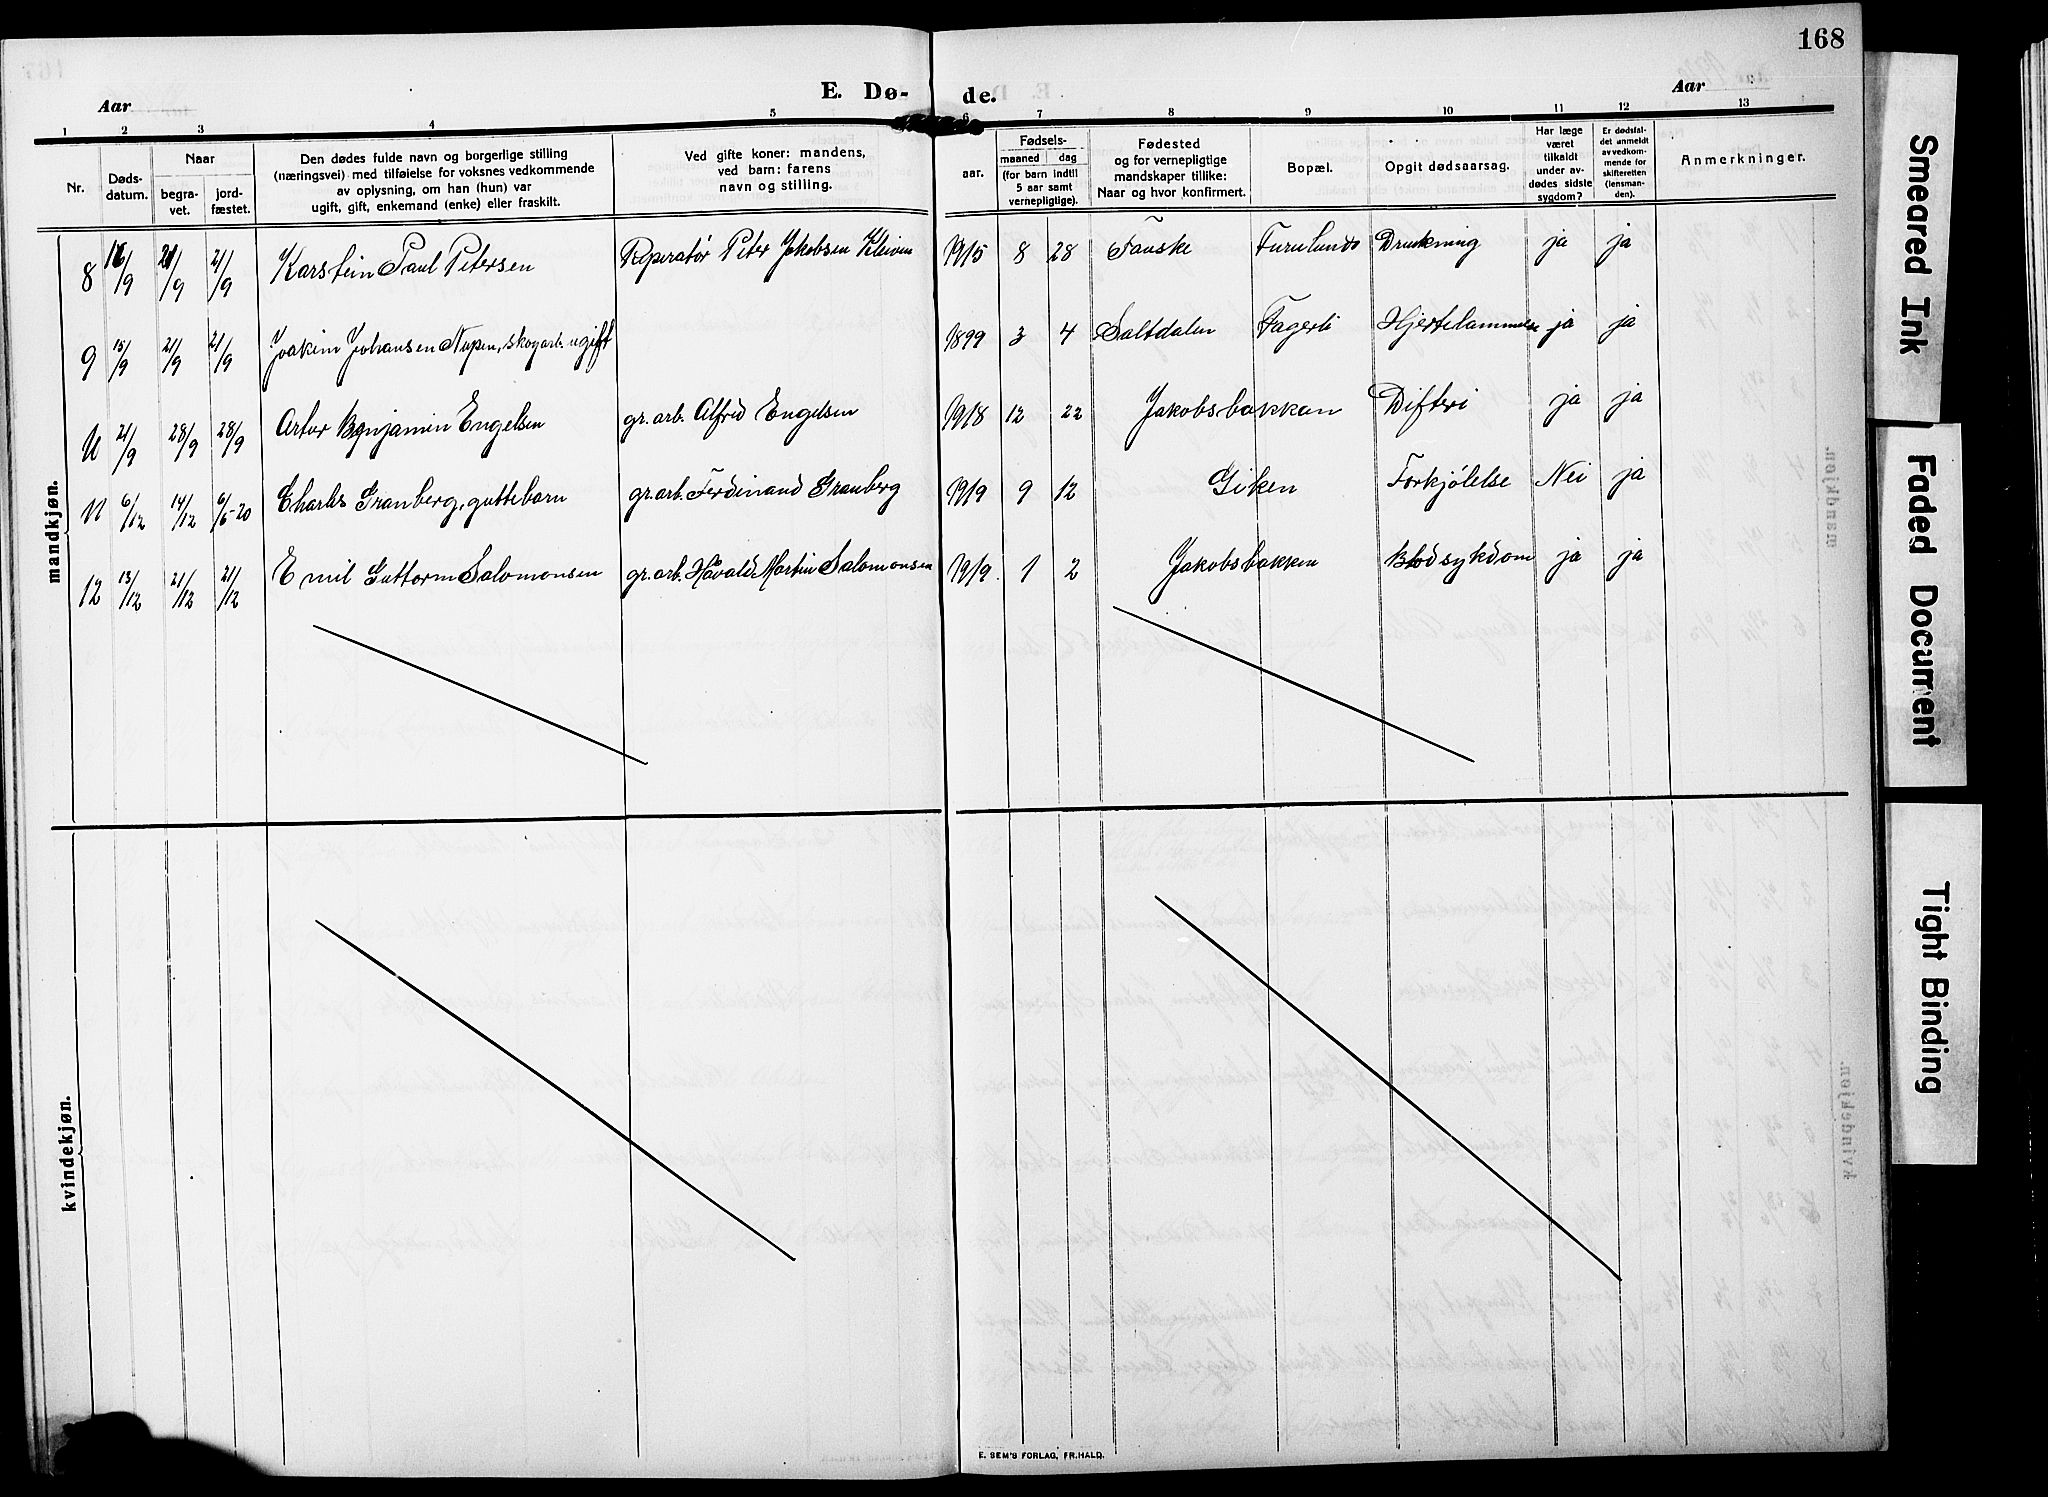 168
E. Dø- de.
Aar Aar
1 2 3 4 5 6 7 8 9 10 11 12 13
Nr.
Døds-
datum.
Naar
begra-
vet.
jord-
fæstet.
Den dødes fulde navn og borgerlige stilling
(næringsvei) med tilføielse for voksnes vedkommende
av oplysning, om han (hun) var
ugift, gift, enkemand (enke) eller fraskilt.
Ved gifte koner: mandens,
ved barn: farens
navn og stilling.
Fødsels-
aar.
maaned dag
(for barn indtil
5 aar samt
vernepligtige).
Fødested
og for vernepligtige
mandskaper tillike:
Naar og hvor konfirmert.
Bopæl.
Opgit dødsaarsag.
Har læge
været
tilkaldt
under av-
dødes sidste
sygdom?
Er dødsfal-
det anmeldt
av vedkom-
mende for
skifteretten
(lensman-
den).
Anmerkninger.
mandkjøn.
8 16/9 21/9 21/9 Karstein Paul Petersen Reperatør Peter Jakobsen Kleiven 1915 8 28 Fauske Furulund Drukning ja ja
9 15/9 21/9 21/9 Joakim Johansen Nupen, skogarb. ugift 1899 3 4 Saltdalen Fagerli Hjertelammelse ja ja
21/9 28/9 28/9 Artur Benjamin Engelsen gr. arb. Alfred Engelsen 1918 12 22 Jakobsbakken Difteri ja ja
11 6/12 14/12 6/5-20 Charles Granberg, guttebarn gr. arb. Ferdinand Granberg 1919 9 12 Giken Forkjølelse Nei ja
12 13/12 21/12 21/12 Emil Guttorm Salomonsen gr. arb. Håvald Martin Salomonsen 1919. 1 2 Jakobsbakken Blodsykdom ja ja
kvindekjøn.
E. SEM'S FORLAG, FR.HALD.
Smeared Ink
Faded Document
Tight Binding